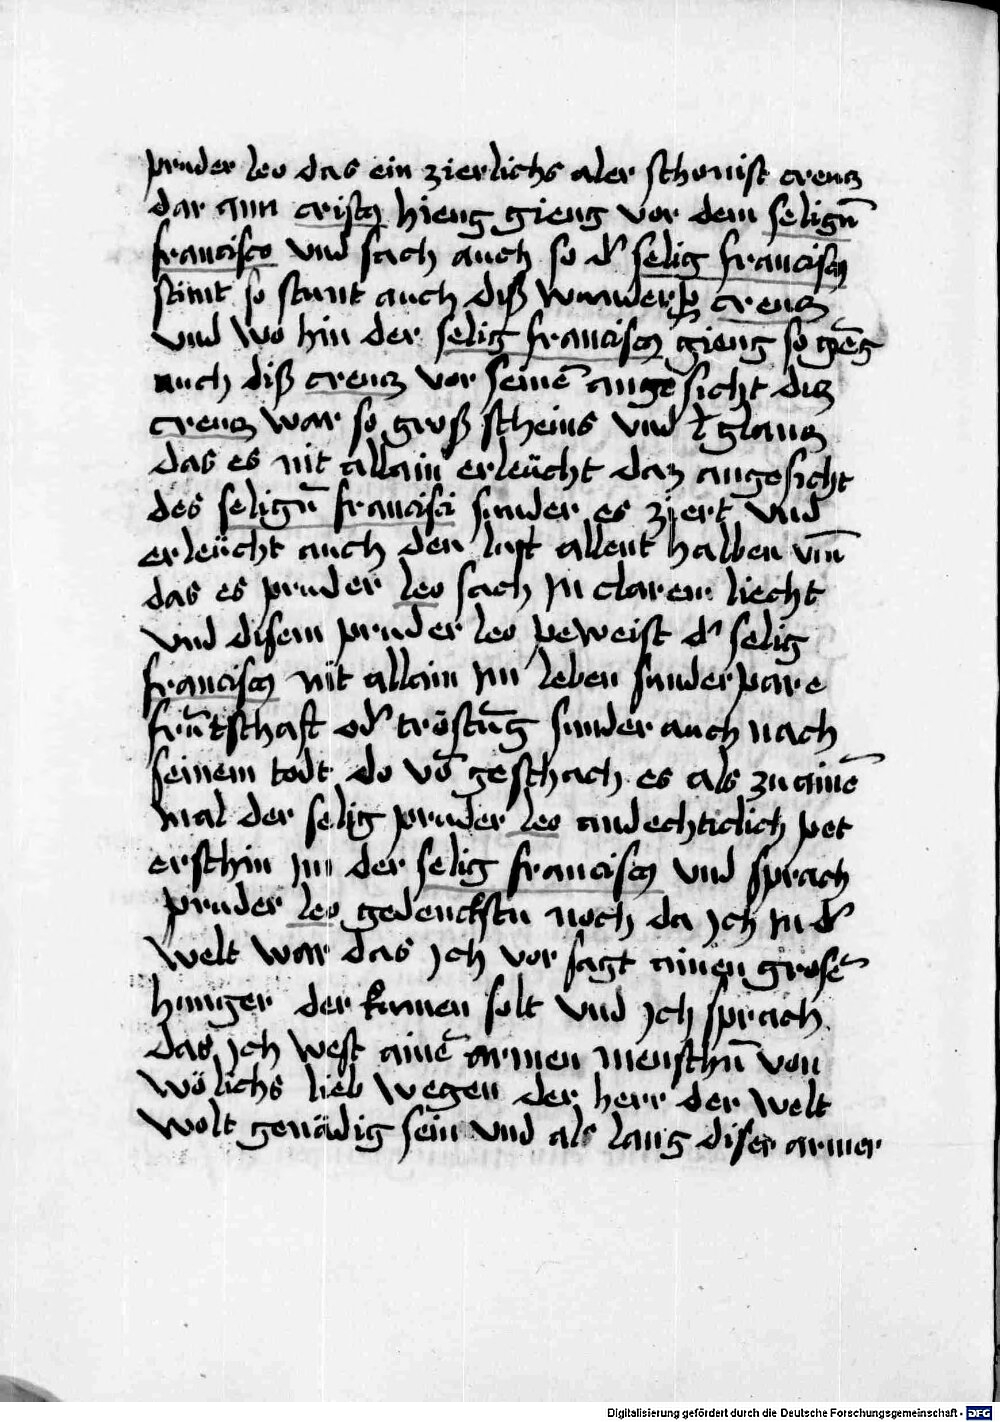 pruder leo das ein zierlichs aler schonist creucz
dar ann cristꝯ hieng gieng vor dem seligñ
francisco vnd sach auch so dˀ selig franciscꝯ
stünt so stunt auch diß wunderp̱ creucz
vnd wo hin der selig franciscꝯ gieng so gieng
auch diß creucz vor seinē angesicht dicz
creucz war so groß scheins vnd glancz
das es nit allain erleücht daz angesicht
des seligñ francisci sunder es ziert vnd
erleücht auch den luft allent halben vm̄
das es pruder leo sach in clarem liecht
vnd disem pruder leo peweist dˀ selig
franciscꝯ nit allain im leben sunderpare
frūtschaft odˀ tröstūg sunder auch nach
seinem todt do vō geschach es als zu ainē
mal der selig pruder leo andechticlich pet
erschin im der selig franciscꝯ vnd sprach
pruder leo gedenckstu noch da ich in dˀ
welt war das ich vor sagt ainen grosē
hunger der kumen solt vnd ich sprach
das ich west ainē armen menschñ von
wölichs lieb wegen der herr der welt
wolt genädig sein vnd als lang diser armer
Digitalisierung gefördert durch die Deutsche Forschungsgemeinschaft - DFG